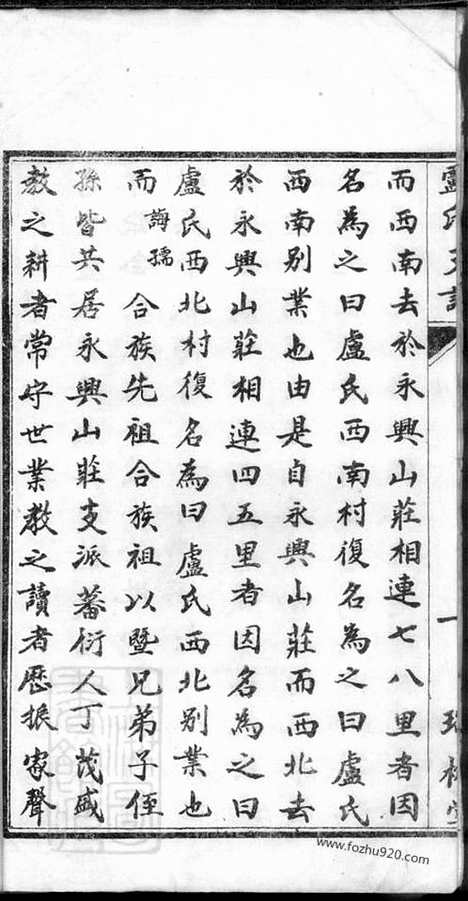 而西南去於永興山莊相連七八里者因
名為之曰盧氏西南村復名為之曰盧氏
西南別業也由是自永興山莊而西北去
於永興山莊相連四五里者因名為之曰
盧氏西北村復名為曰盧氏西北別業也
而誨孺合族先祖合族祖以暨兄弟子侄
孫皆共居永興山莊支派蕃衍人丁茂盛
教之耕者常守世業教之讀者歷振家聲
www.fozhu920.com